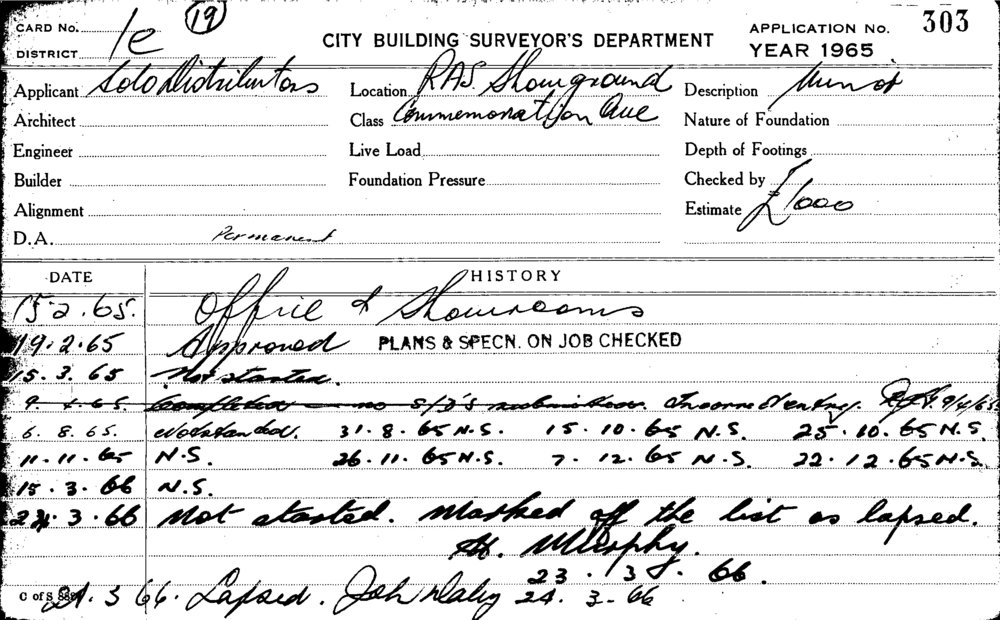 CARD No. 1e (19) CITY BUILDING SURVEYOR'S DEPARTMENT APPLICATION No. 303
DISTRICT YEAR 1965
Applicant Solo Distributors Location RAS. Showground Description Minor
Architect Class Commemoration Ave Nature of Foundation
Engineer Live Load Depth of Footings
Builder Foundation Pressure Checked by
Alignment Estimate £1000
D.A. Permanent
DATE HISTORY
15 2. 65. Office & Showrooms
19.2.65 Approved PLANS & SPECN. ON JOB CHECKED
15. 3. 65 Not started.
9. 4.65. Completed — no S/D's submitted. Incorrect entry. 9/4/65
6. 8. 65. Not started. 31. 8. 65 N.S. 15. 10. 65 N.S. 25. 10. 65 N.S.
11. 11. 65 N.S. 26. 11. 65 N.S. 7. 12. 65 N.S. 22. 12. 65 N.S.
15. 3. 66 N.S.
3. 66 Not started. Marked off the list as lapsed.
Murphy.
23. 3. 66.
C of S 3 66. Lapsed. 24. 3. 66